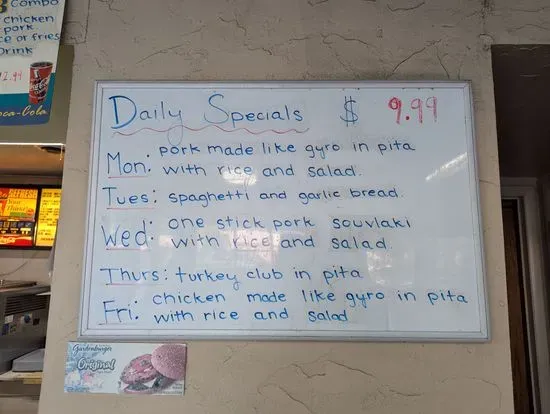 Combo
chicken
pork
or fries
Drink
Coca-Cola
Daily Specials $ 9.99
Mon: pork made like gyro in pita
with rice and salad.
Tues: spaghetti and garlic bread.
Wed: one stick pork souvlaki
with rice and salad.
Thurs: turkey club in pita
Fri: chicken made like gyro in pita
with rice and salad
Gardenburger
Original